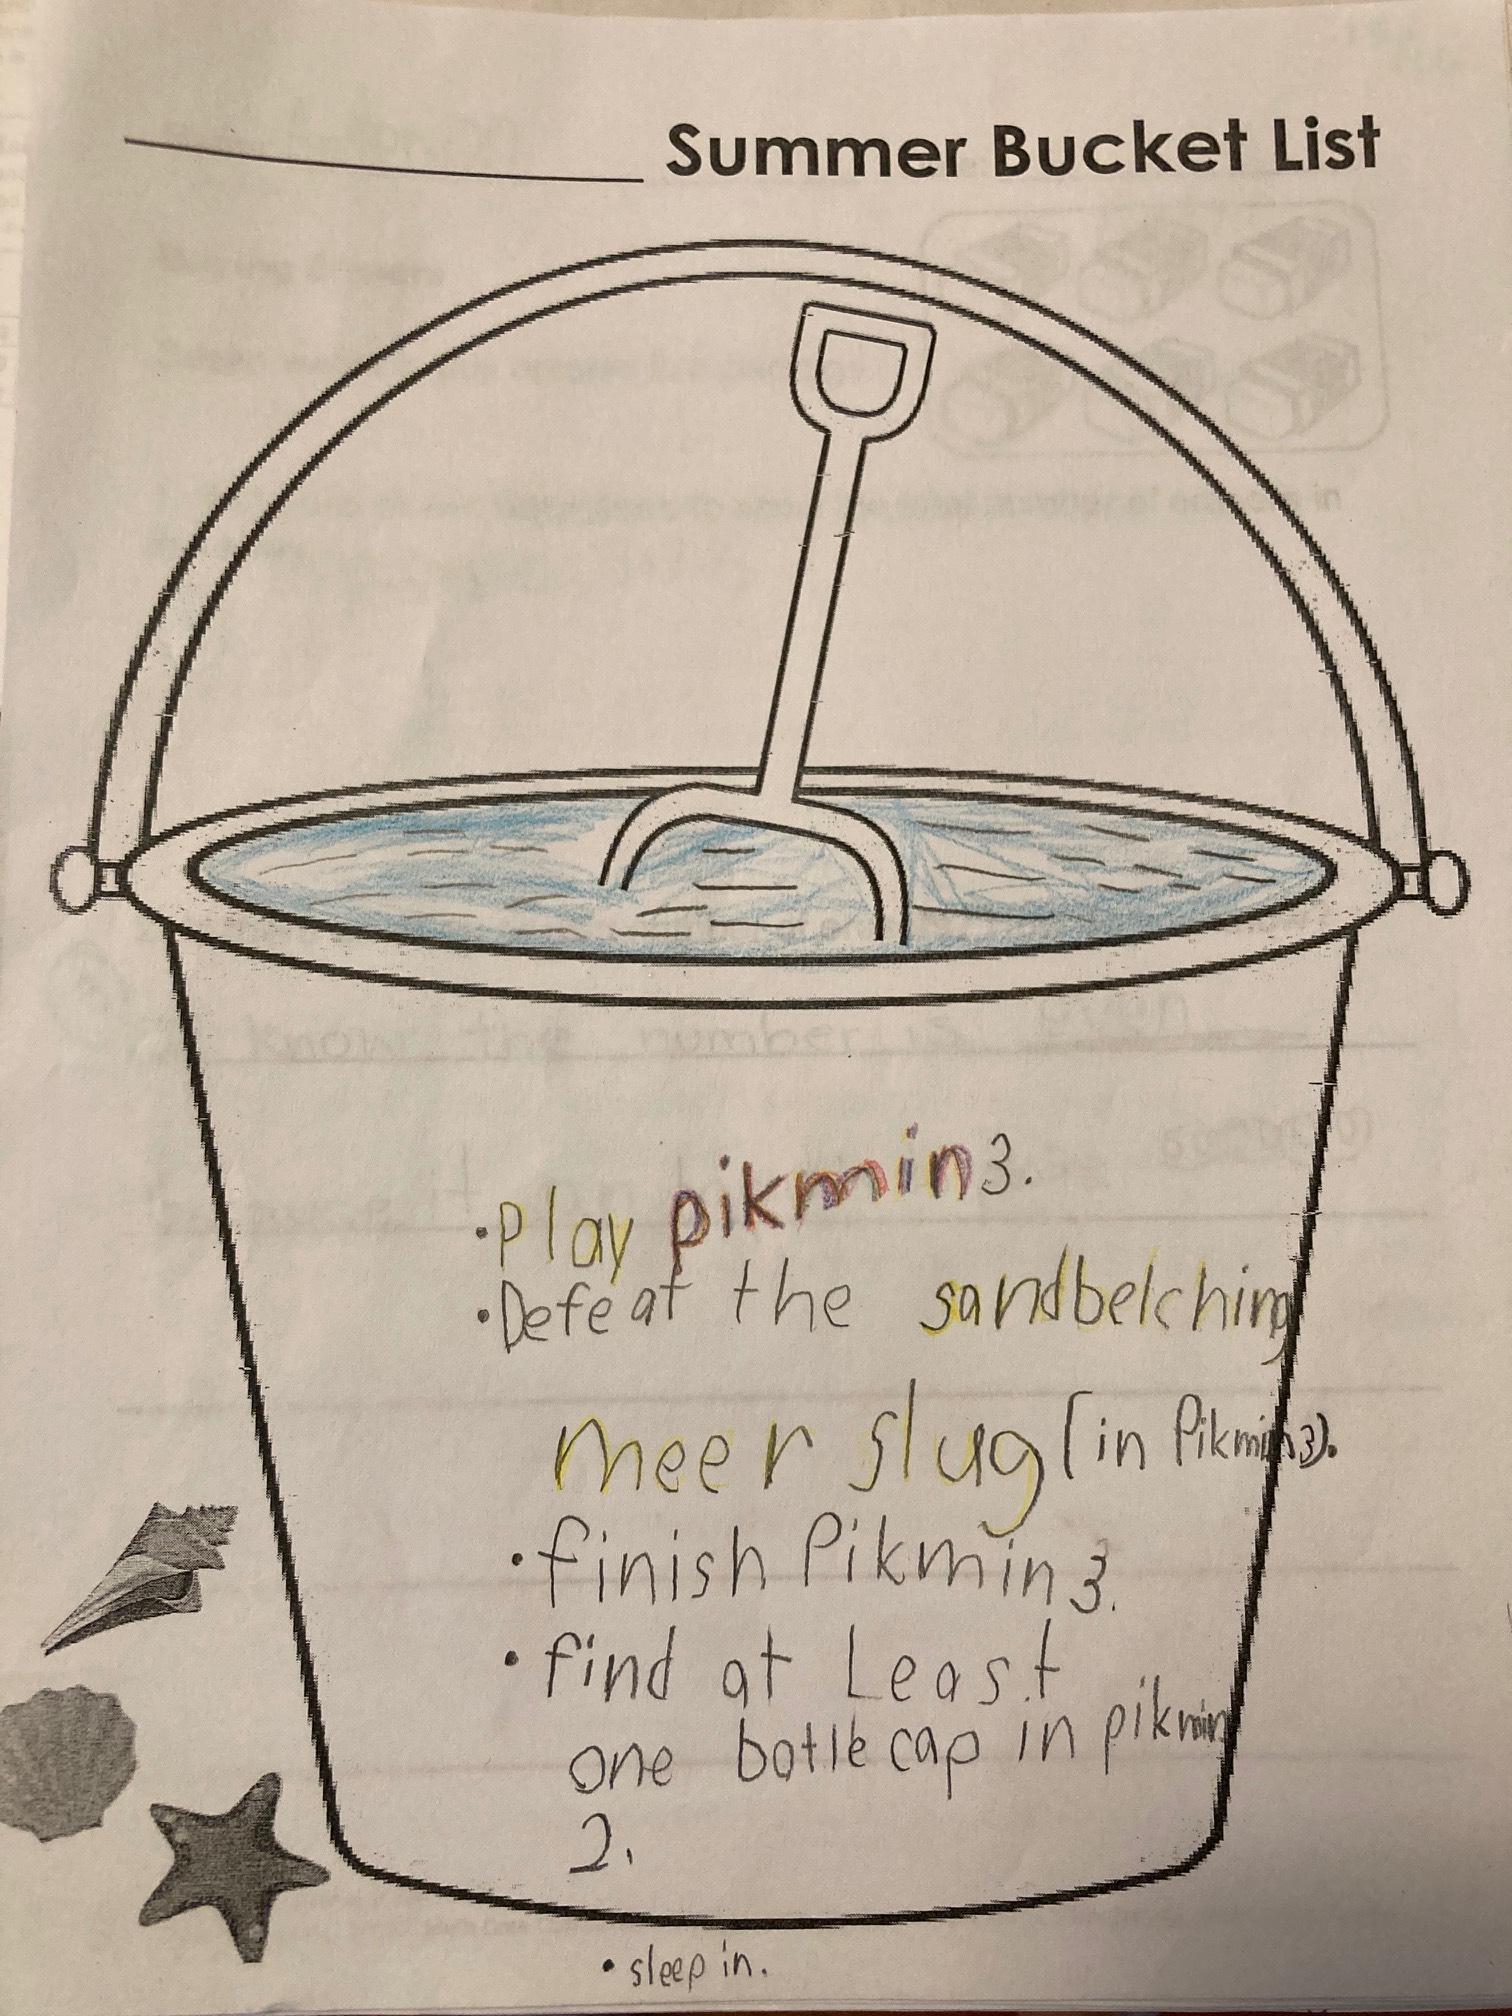 Summer Bucket List
• Play pikmin 3.
• Defeat the sandbelching
meer slug (in Pikmin 3).
• finish Pikmin 3.
• find at Least
one bottle cap in pikmin
2.
• sleep in.